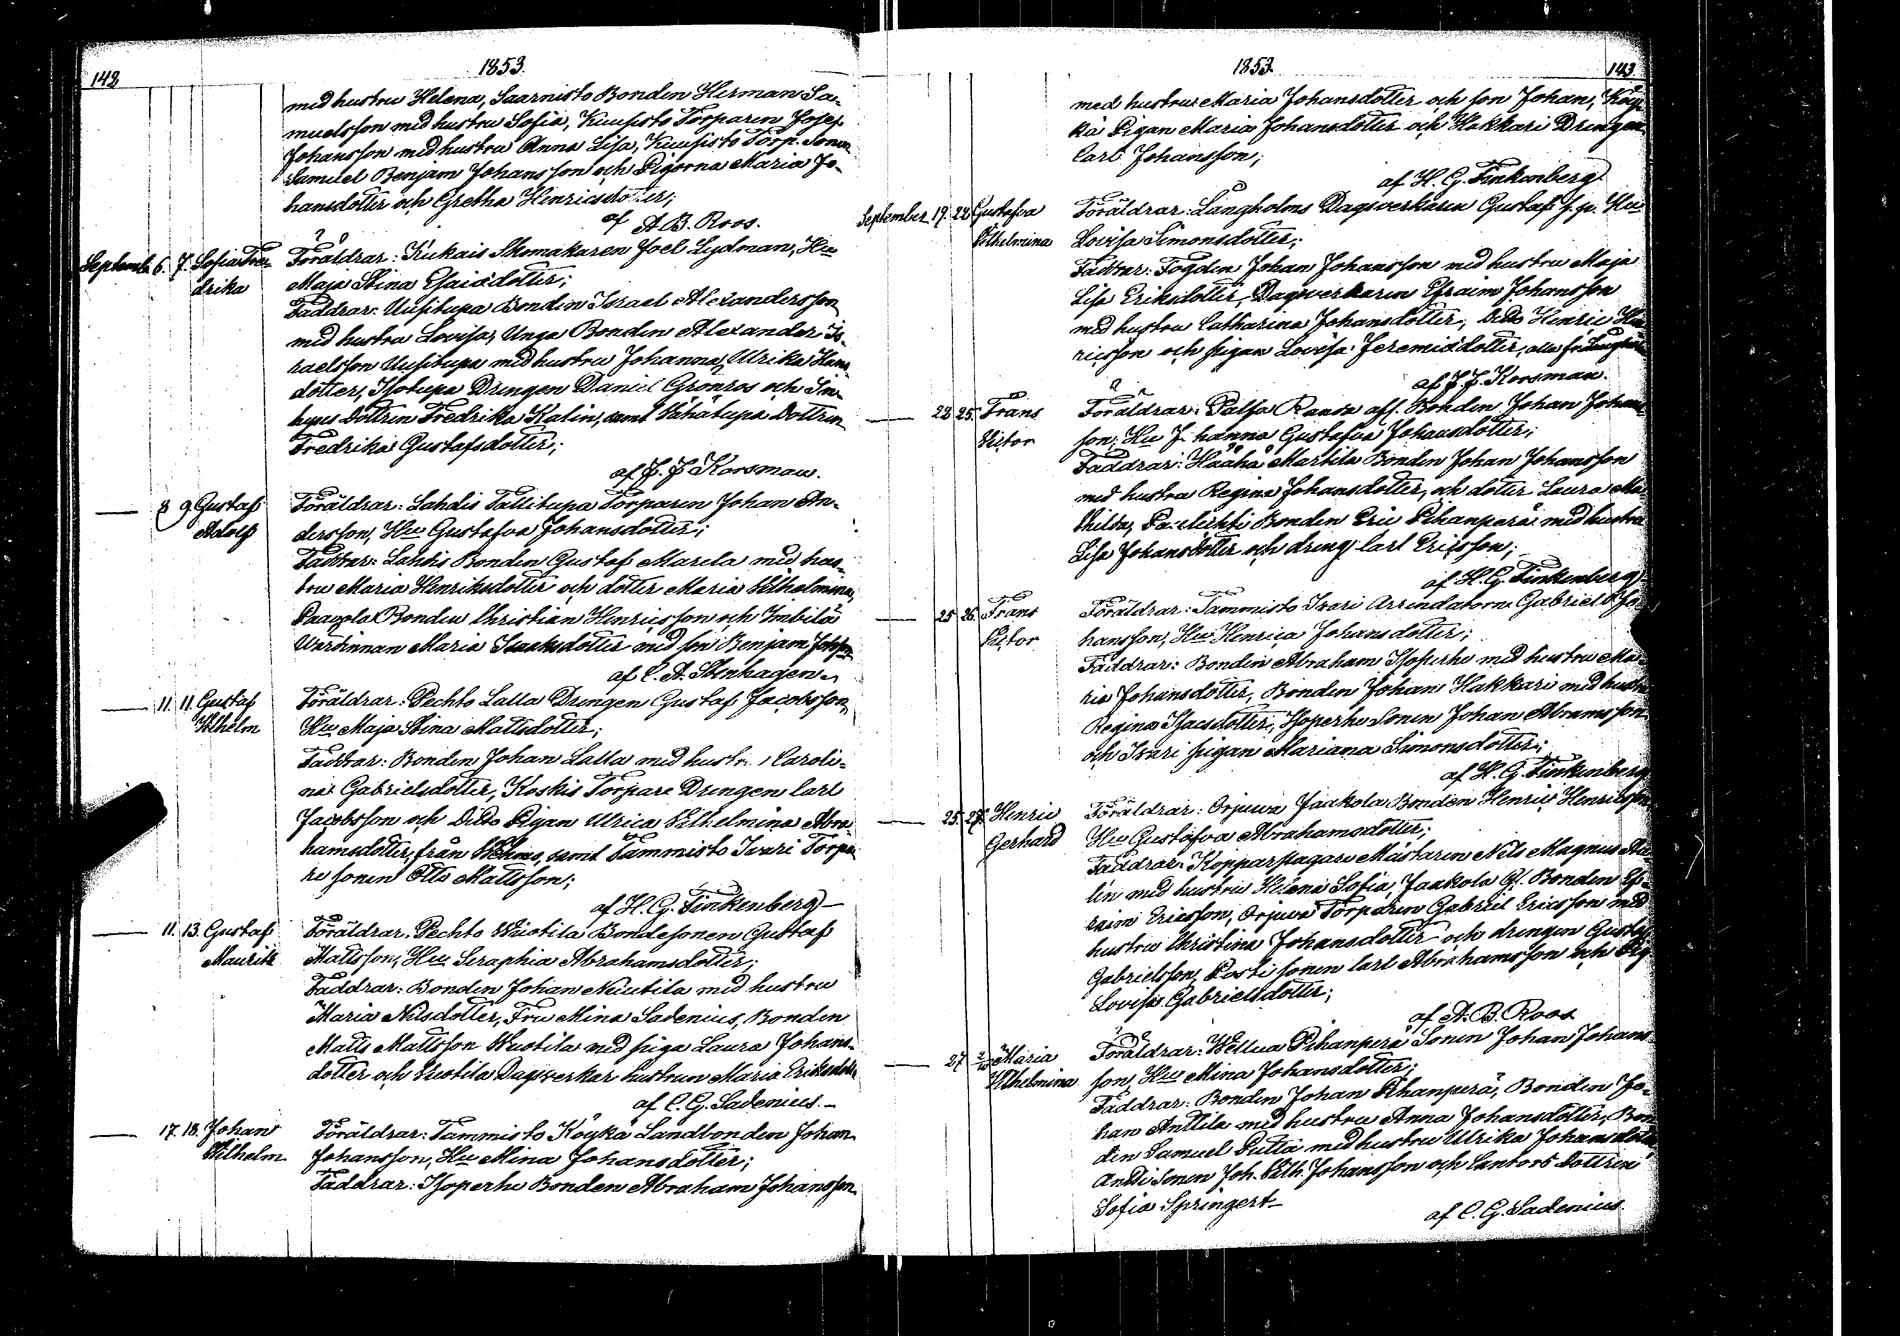 142
1853.
med hustru Helena, Saarnisto Bonden Herman Sa-
muelsson med hustru Sofia, Kuusisto Torparen Josef
Johansson med hustru Anna Lisa, Kuusisto Torp. Sonen
Samuel Benjam Johansson och Pigorna Maria Jo-
hansdotter och Gretha Henricsdotter;
af A. B. Roos.
September 6. 7. Sofia Fre- Föräldrar: Kukais Skomakaren Joel Lydman, Hu
drika Maja Stina Esaiædotter;
Faddrar: Uusitupa Bonden Israel Alexandersson
med hustru Lovisa, Unga Bonden Alexander Is-
raelsson Uusitupa med hustru Johanna Ulrika Hans
dotter, Isotupa Drengen Daniel Grönros och
Dottren Fredrika Kalin, samt Vähätupa Dottren
Fredrika Gustafsdotter;
af J. J. Korsman.
— 8 9 Gustaf Föräldrar: Lahdis Tallitupa Torparen Johan An-
Adolf dersson, Hu Gustafva Johansdotter;
Faddrar: Lahdis Bonden Gustaf Marela med hus-
tru Maria Henriksdotter och dotter Maria Vilhelmina,
Paavola Bonden Christian Henricsson och Imbilä
Värdinnan Maria Isaaksdotter med son Benjam Johsson
af C. A. Stenhagen.
— 11. 11. Gustaf Föräldrar: Pechto Lalla Drengen Gustaf Jacobsson,
Vilhelm Hu Maja Stina Mattsdotter;
Faddrar: Bonden Johan Lalla med hustru Caroli-
na Gabrielsdotter, Koskis Torpare Drengen Carl
Jacobsson och Dito Pigan Ulrica Vilhelmina Abra-
hamsdotter, från Vehmo, samt Tammisto Ivari Torpa-
re sonen Otto Mattsson;
af H. G. Finkenberg —
— 11. 13. Gustaf Föräldrar: Pechto Wuotila Bondesonen Gustaf
Mauritz Mattsson, Hu Seraphia Abrahamsdotter;
Faddrar: Bonden Johan Niuttila med hustru
Maria Nilsdotter, Fru Mina Sadenius, Bonden
Matts Mattsson Wuotila med piga Laura Johans-
dotter och Vuotila Dagsverkar hustrun Maria Eriksdotter
af C. G. Sadenius. —
— 17. 18. Johan Föräldrar: Tammisto Köykä Landbonden Johan
Vilhelm Johansson, Hu Mina Johansdotter;
Faddrar: Isoperhe Bonden Abraham Johansson
1853.
143
med hustru Maria Johansdotter och son Johan, Köy-
kä Pigan Maria Johansdotter och Hakkari Drengen
Carl Johansson;
af H. G. Finkenberg
September 19. 22. Gustafva Föräldrar: Långholms Dagsverkaren Gustaf Hu
Vilhelmina Lovisa Simonsdotter;
Faddrar: Fogden Johan Johansson med hustru Maja
Lisa Eriksdotter, Dagsverkaren Efraim Johansson
med hustru Catharina Johansdotter, Dito Henric Hen
ricsson och pigan Lovisa Jeremiædotter, alla fr. Långholm
af J. J. Korsman.
— 22. 25. Frans Föräldrar: Palsa Ranta afs. Bonden Johan Johans
Victor son, Hu Johanna Gustafva Johansdotter;
Faddrar: Häähä Marttila Bonden Johan Johansson
med hustru Regina Johansdotter, och dotter Laura Ma-
thilda, Bonden Eric Pihanperä med hustru
Lisa Johansdotter och dreng Carl Ericsson;
af H. G. Finkenberg
— 25. 26. Frans Föräldrar: Tammisto Ivari Arrendatorn Gabriel Jo-
Victor hansson, Hu Henrica Johansdotter;
Faddrar: Bonden Abraham Isoperhe med hustru Ma-
ria Johansdotter, Bonden Johan Hakkari med hustru
Regina Isacsdotter, Isoperhe Sonen Johan Abramsson
och Ivari pigan Mariana Simonsdotter;
af H. G. Finkenberg
— 25. 27. Henric Föräldrar: Orjuva Jaakola Bonden Henric Henricsson
Gerhard Hu Gustafva Abrahamsdotter;
Faddrar: Kopparslagare Mästaren Nils Magnus
lin med hustru Helena Sofia, Jaakola Gl. Bonden Ef-
raim Ericsson, Orjuva Torparen Gabriel Ericsson med
hustru Christina Johansdotter och drengen Gustaf
Gabrielsson, Posti sonen Carl Abrahamsson och Pig.
Lovisa Gabrielsdotter;
af A. B. Roos
— 27 2/10 Maria Föräldrar: Wellua Pihanperä Sonen Johan Johans
Vilhelmina son, Hu Mina Johansdotter;
Faddrar: Bonden Johan Pihanperä, Bonden Jo-
han Anttila med hustru Anna Johansdotter, Bon-
den Samuel Sutta med hustru Ulrika Johansdotter,
Antti Sonen Joh. Vilh. Johansson och Cantors Dottren
Sofia Springert —
af C. G. Sadenius.